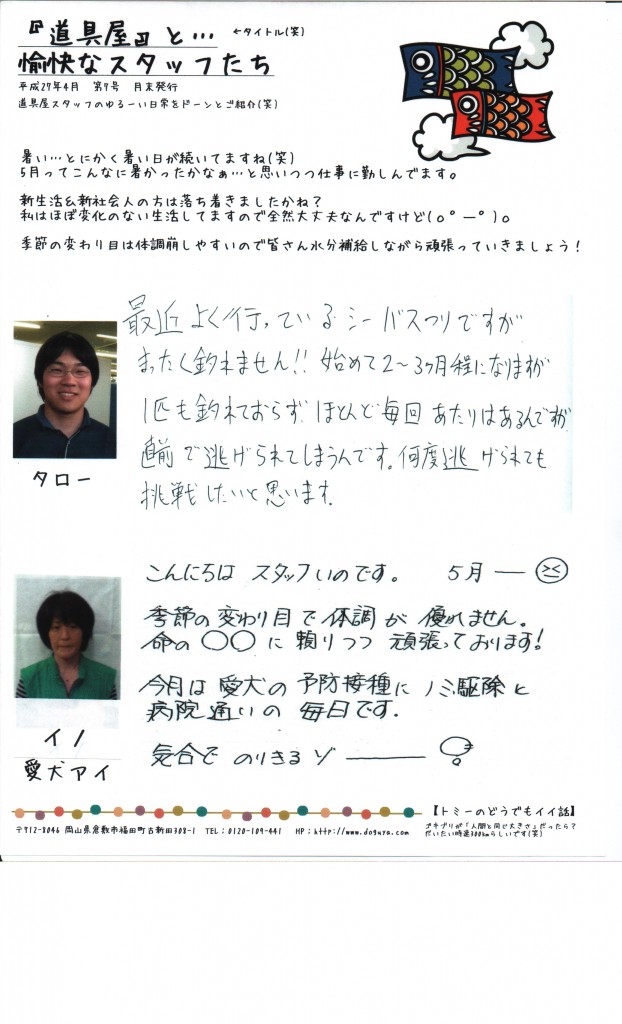 『道具屋』と… ←タイトル(笑)
愉快なスタッフたち
平成27年4月　第9号　月末発行
道具屋スタッフのゆるーい日常をドーンとご紹介(笑)
暑い…とにかく暑い日が続いてますね(笑)
5月ってこんなに暑かったかなぁ…と思いつつ仕事に勤しんでます。
新生活&新社会人の方は落ち着きましたかね?
私はほぼ変化のない生活してますので全然大丈夫なんですけど(o°ー°)o
季節の変わり目は体調崩しやすいので皆さん水分補給しながら頑張っていきましょう!
最近よく行っているシーバスつりですが
まったく釣れません!! 始めて2〜3ヶ月程になりますが
1匹も釣れておらず ほとんど毎回あたりはあるんですが
直前で逃げられてしまうんです。何度逃げられても
挑戦したいと思います。
タロー
こんにちは スタッフいのです。 5月 ―
季節の変わり目で体調が優れません。
命の○○に頼りつつ頑張っております!
今月は愛犬の予防接種にノミ駆除と
病院通いの毎日です.
気合でのりきるゾ ―
イノ
愛犬アイ
【トミーのどうでもイイ話】
〒712-8046 岡山県倉敷市福田町古新田308-1　TEL：0120-109-441　HP：http://www.doguya.com/
ゴキブリが「人間と同じ大きさ」だったら?
だいたい時速300kmらしいです(笑)